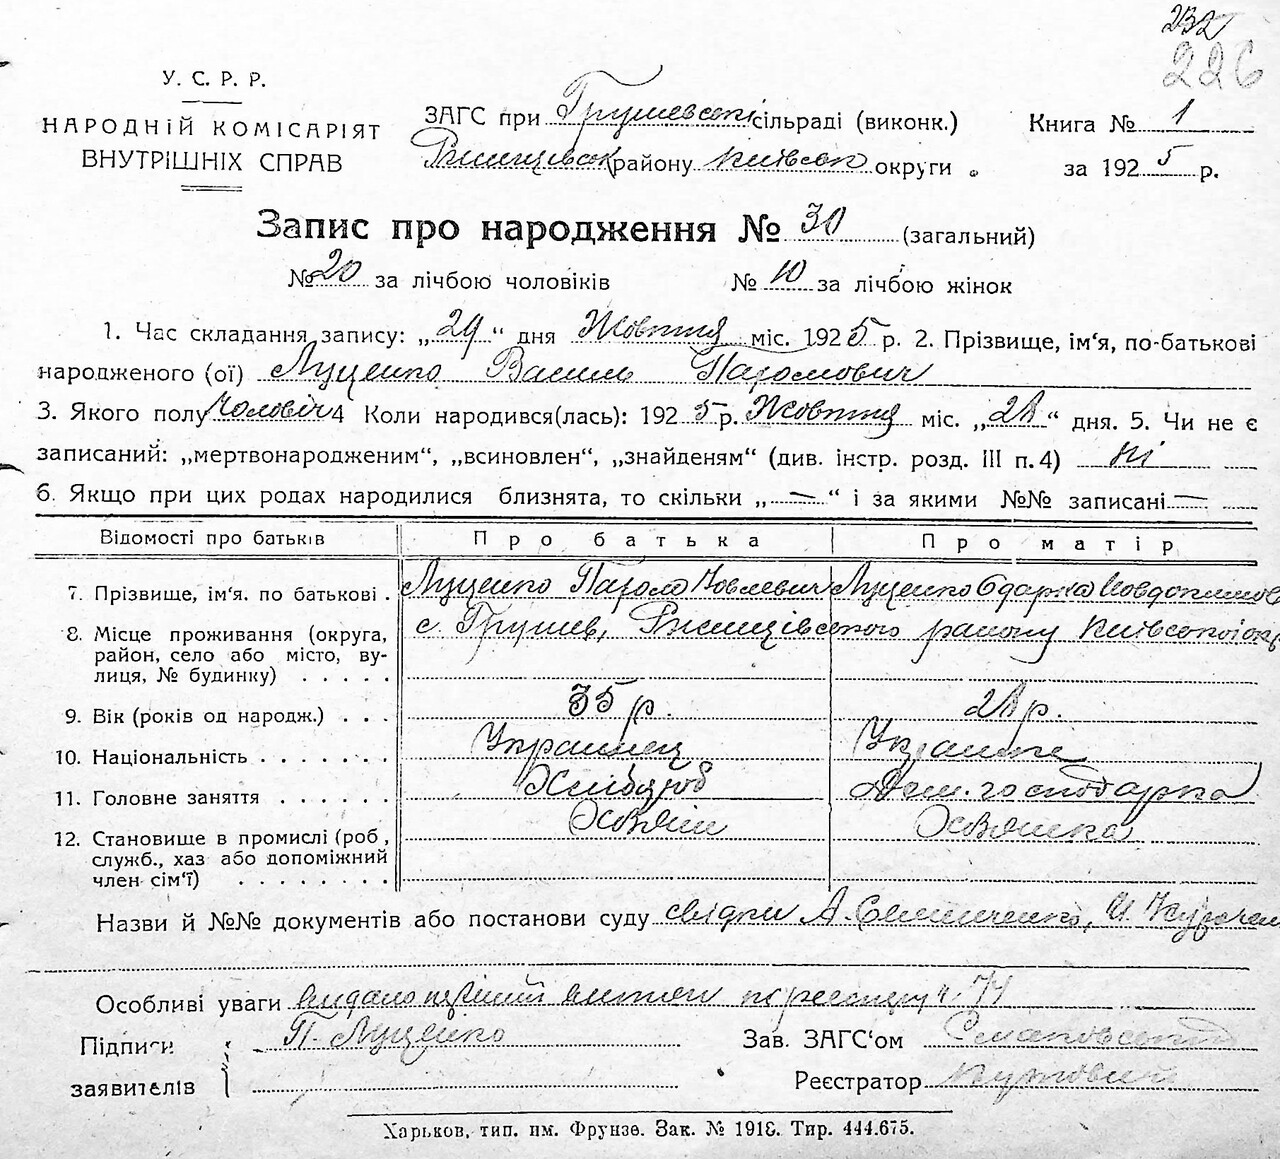 232
226
У. С. Р. Р.
НАРОДНІЙ КОМІСАРІЯТ
ВНУТРІШНІХ СПРАВ
ЗАГС при Грушевські сільраді (виконк.)
Ржищівськ району Київськ округи
Книга № 1
за 1925 р.
Запис про народження № 30 (загальний)
№ 20 за лічбою чоловіків № 10 за лічбою жінок
1. Час складання запису: „29“ дня Жовтня міс. 1925 р. 2. Прізвище, ім‘я, по-батькові
народженого (ої) Луценко Василь Пахомович
3. Якого полу Чоловіч 4 Коли народився(лась): 1925 р. Жовтня міс. „28“ дня. 5. Чи не є
записаний: „мертвонародженим“, „всиновлен“, „знайденям“ (див. інстр. розд. III п. 4) ні
6. Якщо при цих родах народилися близнята, то скільки „—“ і за якими №№ записані —
Відомості про батьків Про батька Про матір
7. Прізвище, ім‘я. по батькові . Луценко Пахом Іовлевич Луценко Одарка
8. Місце проживання (округа, с. Грушев, Ржищівського району Київської окр
район, село або місто, ву-
лиця, № будинку) . . . . .
9. Вік (років од народж.) . . . 35 р. 28 р.
10. Національність . . . . . . . Украинец Украинка
11. Головне заняття . . . . . . Хлібороб Дом. господарка
12. Становище в промислі (роб,
служб., хаз або допоміжний
член сім‘ї) . . . . . . . .
Назви й №№ документів або постанови суду свідки А. Семиченко, И.
Особливі уваги видано витяг по реєстру ч. 74
Підписи П. Луценко Зав. ЗАГС‘ом
заявителів Реєстратор
Харьков, тип. им. Фрунзе. Зак. № 1918. Тир. 444.675.